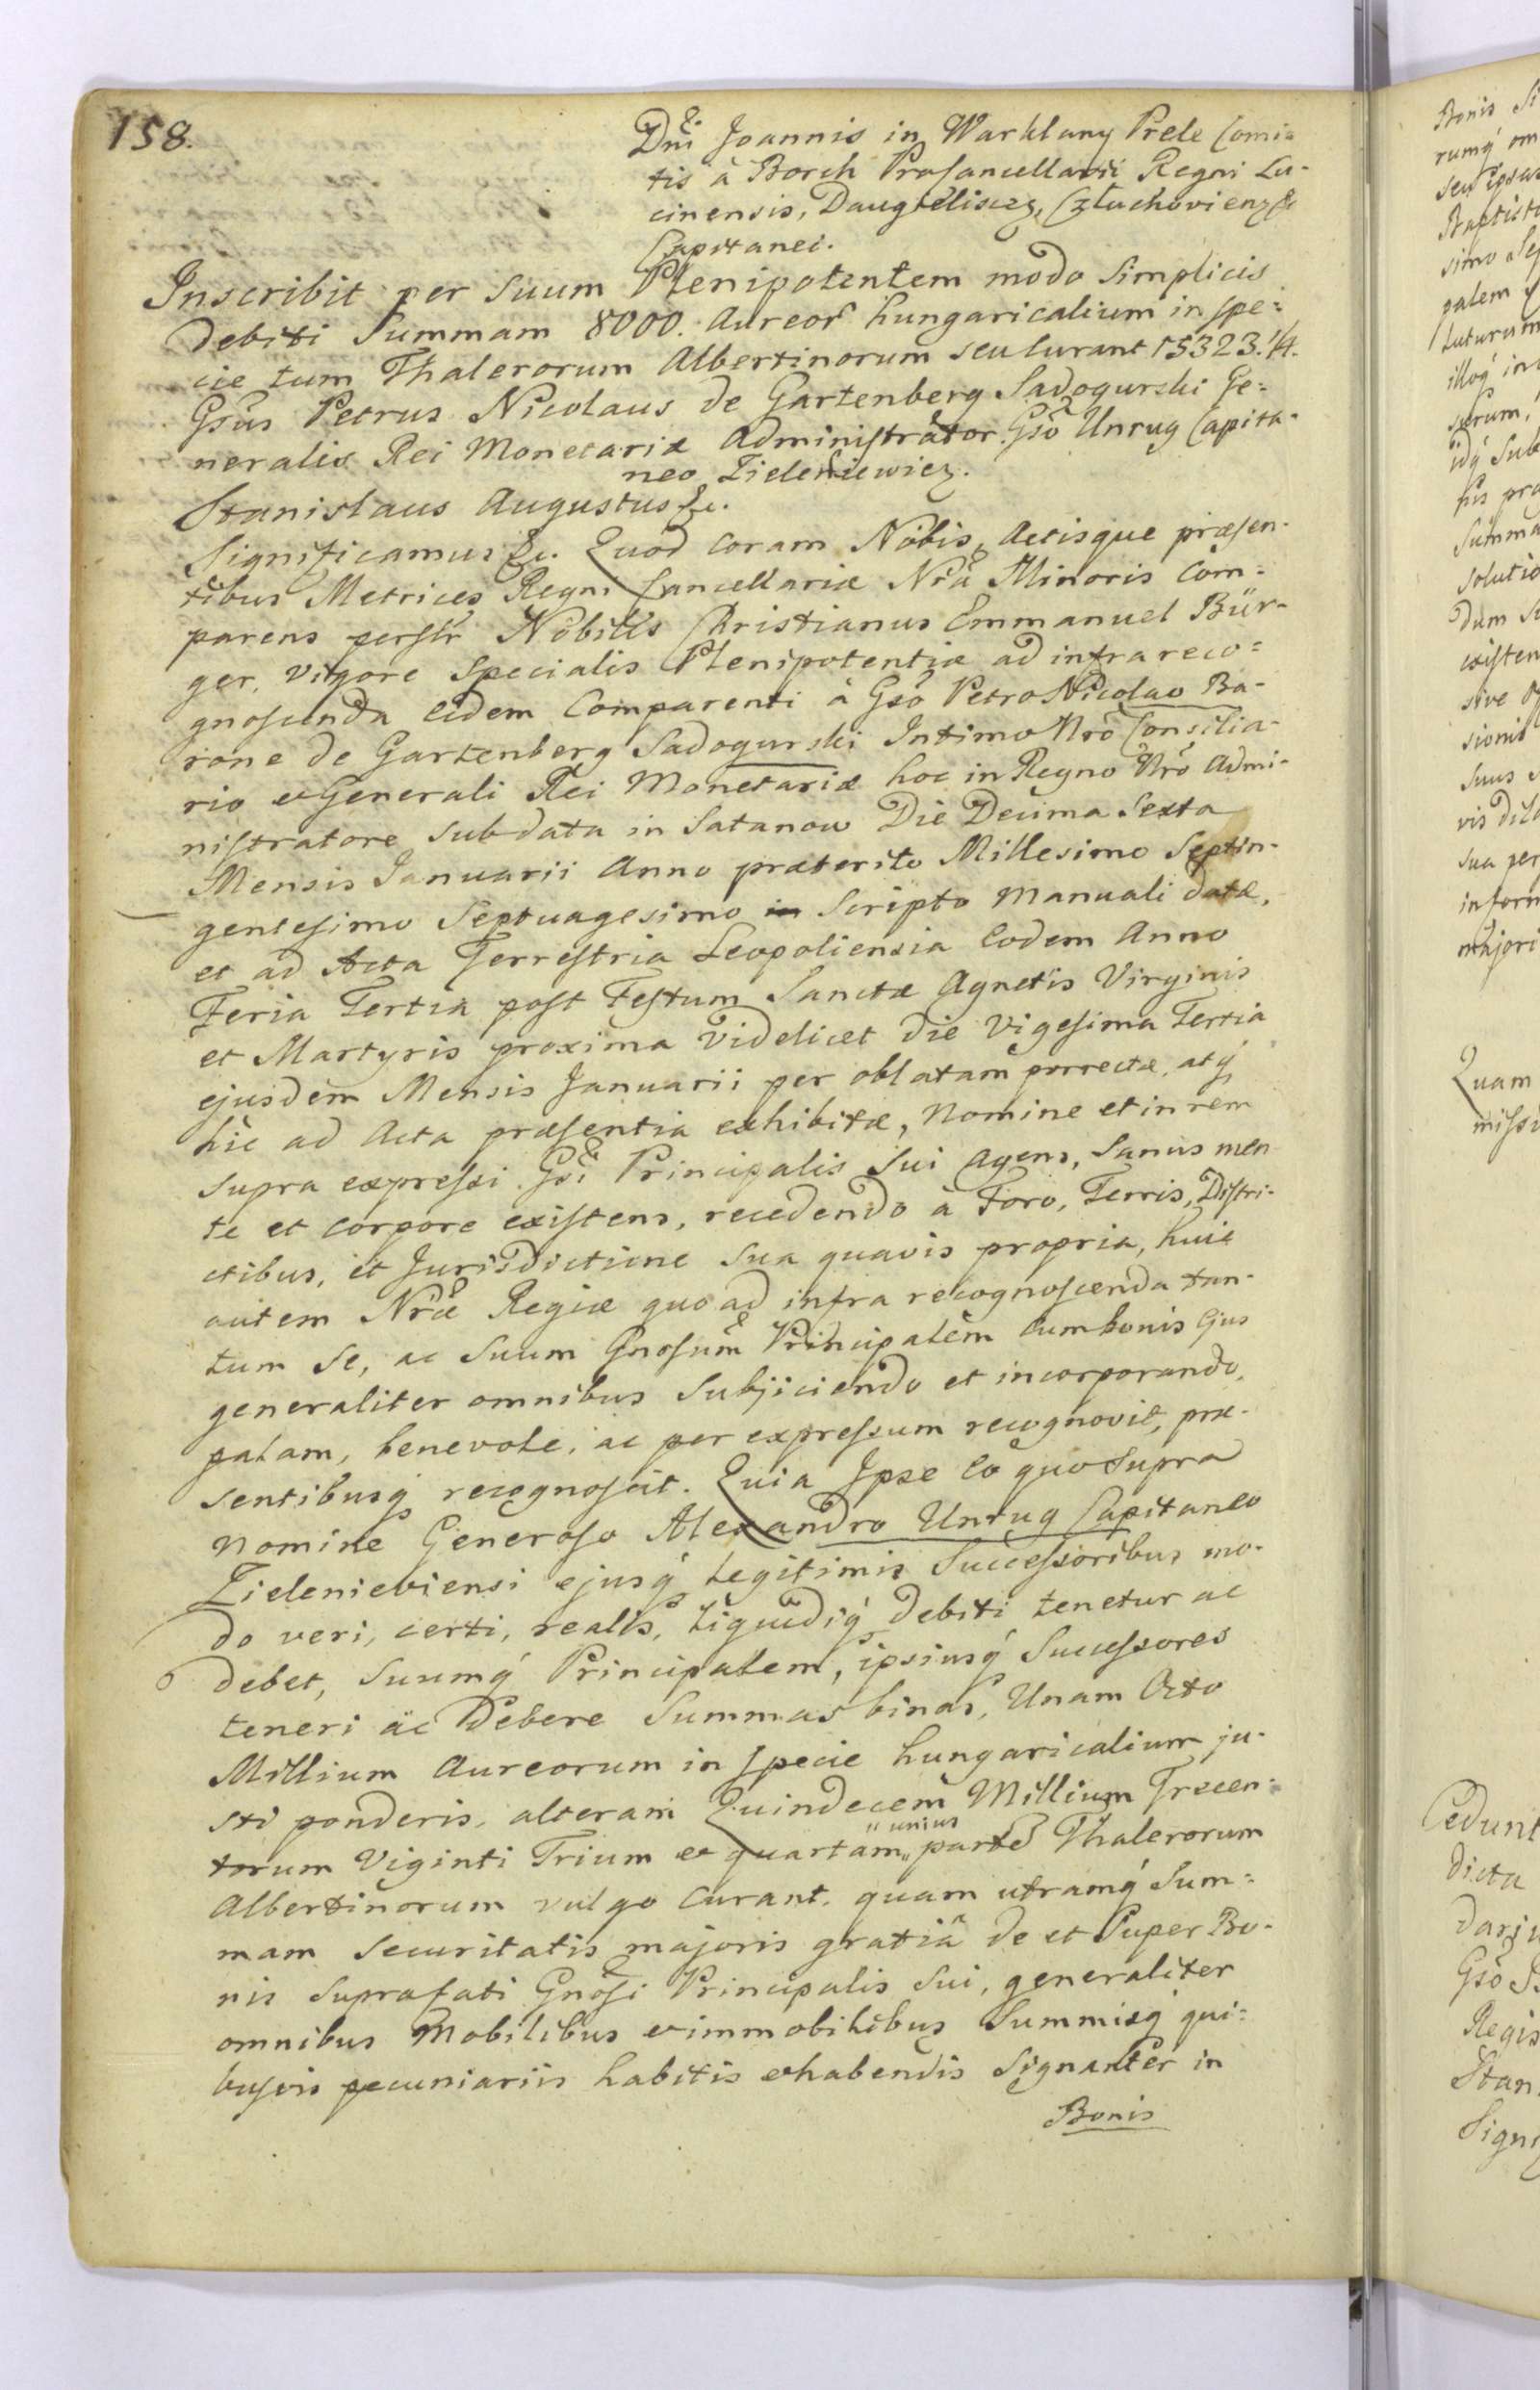 158.
Dni Joannis in Warklany Prele Comi=
tis à Borch Procancellarii Regni Lu-
cinensis, Daugielisez, Człuchovienz &c
Capitanei.
Inscribit per suum Plenipotentem modo Simplicis
Debiti Summam 8000. Aureor hungaricalium in spe=
cie tum Thalerorum Albertinorum seu Curant 15323.1/4.
Gsus Petrus Nicolaus de Gartenberg Sadogurski Ge=
neralis Rei Monetariæ Administrator Gso Unrug Capita-
neo Zieleniewicz.
Stanislaus Augustus &c.
Significamus &c. Quod coram Nobis, Actisque præsen-
tibus Metrices Regni Cancellariæ Nrâ Minoris Com=
parens persłr Nobilis Christianus Emmanuel Bür-
ger, vigore Specialis Plenipotentiæ ad infra reco=
gnoscenda eidem Comparenti à Gsô Petro Nicolao Ba-
rone de Gartenberg Sadogurski Intimo Nrô Consilia-
rio et Generali Rei Monetariæ hoc in Regno Nrô Admi-
nistratore sub data in Satanow Die Decima Sexta
Mensis Januarii Anno præterito Millesimo Septin-
gentesimo Septuagesimo in Scripto Manuali datæ,
et ad Acta Terrestria Leopoliensia Eodem Anno
Feria Tertia post Festum Sanctæ Agnetis Virginis
et Martyris proxima Videlicet Die Vigesima Tertia
ejusdem Mensis Januarii per oblatam porrectæ, atq́
hic ad Acta præsentia exhibitæ, Nomine et in rem
supra expressi Gsi Principalis Sui Agens, Sanus men
te et corpore existens, recedendo à Foro, Terris, Distri-
ctibus, et Jurisdictione sua quavis propria, huic
autem Nræ Regiæ quo ad infra recognoscenda tan-
tum Se, ac Suum Gnosum Principalem cum bonis Ejus
generaliter omnibus Subjiciendo et incorporando,
palam, benevole, ac per expressum recognovit, præ-
sentibusq́ recognoscit. Quia Ipse Eo quo Supra
Nomine Generoso Alexandro Unrug Capitaneo
Zieleniewiensi ejusq́ Legitimis Successoribus mo-
do veri, certi, realis, Liquidiq́ Debiti tenetur ac
debet, Suumq́ Principalem, ipsiusq́ Successores
teneri ac Debere Summas binas, Unam Octo
Millium Aureorum in Specie hungaricalium ju-
sti ponderis, alteram Quindecem Millium Trecen=
torum Viginti Trium et quartam „ parte Thalerorum
„ unius
Albertinorum vulgo Curant, quam utramq́ Sum=
mam Securitatis majoris gratiâ de et Super Bo-
nis Suprafati Gnosi Principalis Sui, generaliter
omnibus Mobilibus et immobilibus Summisq́ qui=
busvis pecuniariis habitis et habendis Signanter in
Bonis
Quam
Cedunt
dicta
Regis
Stan.